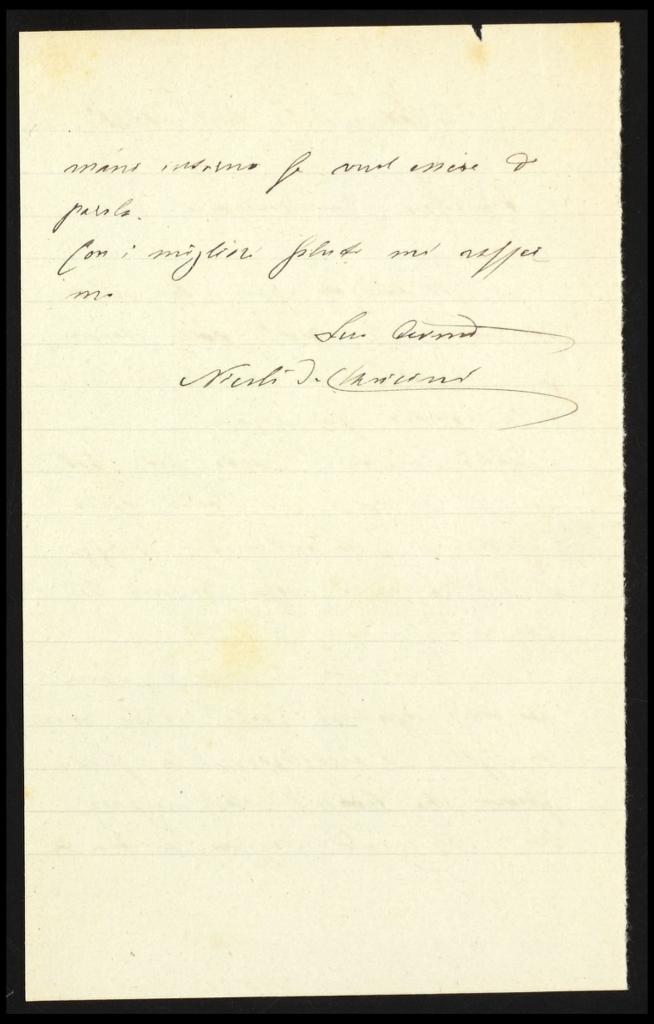 mano intorno se vuol essere di
parola.
Con i migliori saluti mi raffer
mo
Suo Devmo
Nicolò de Claricini